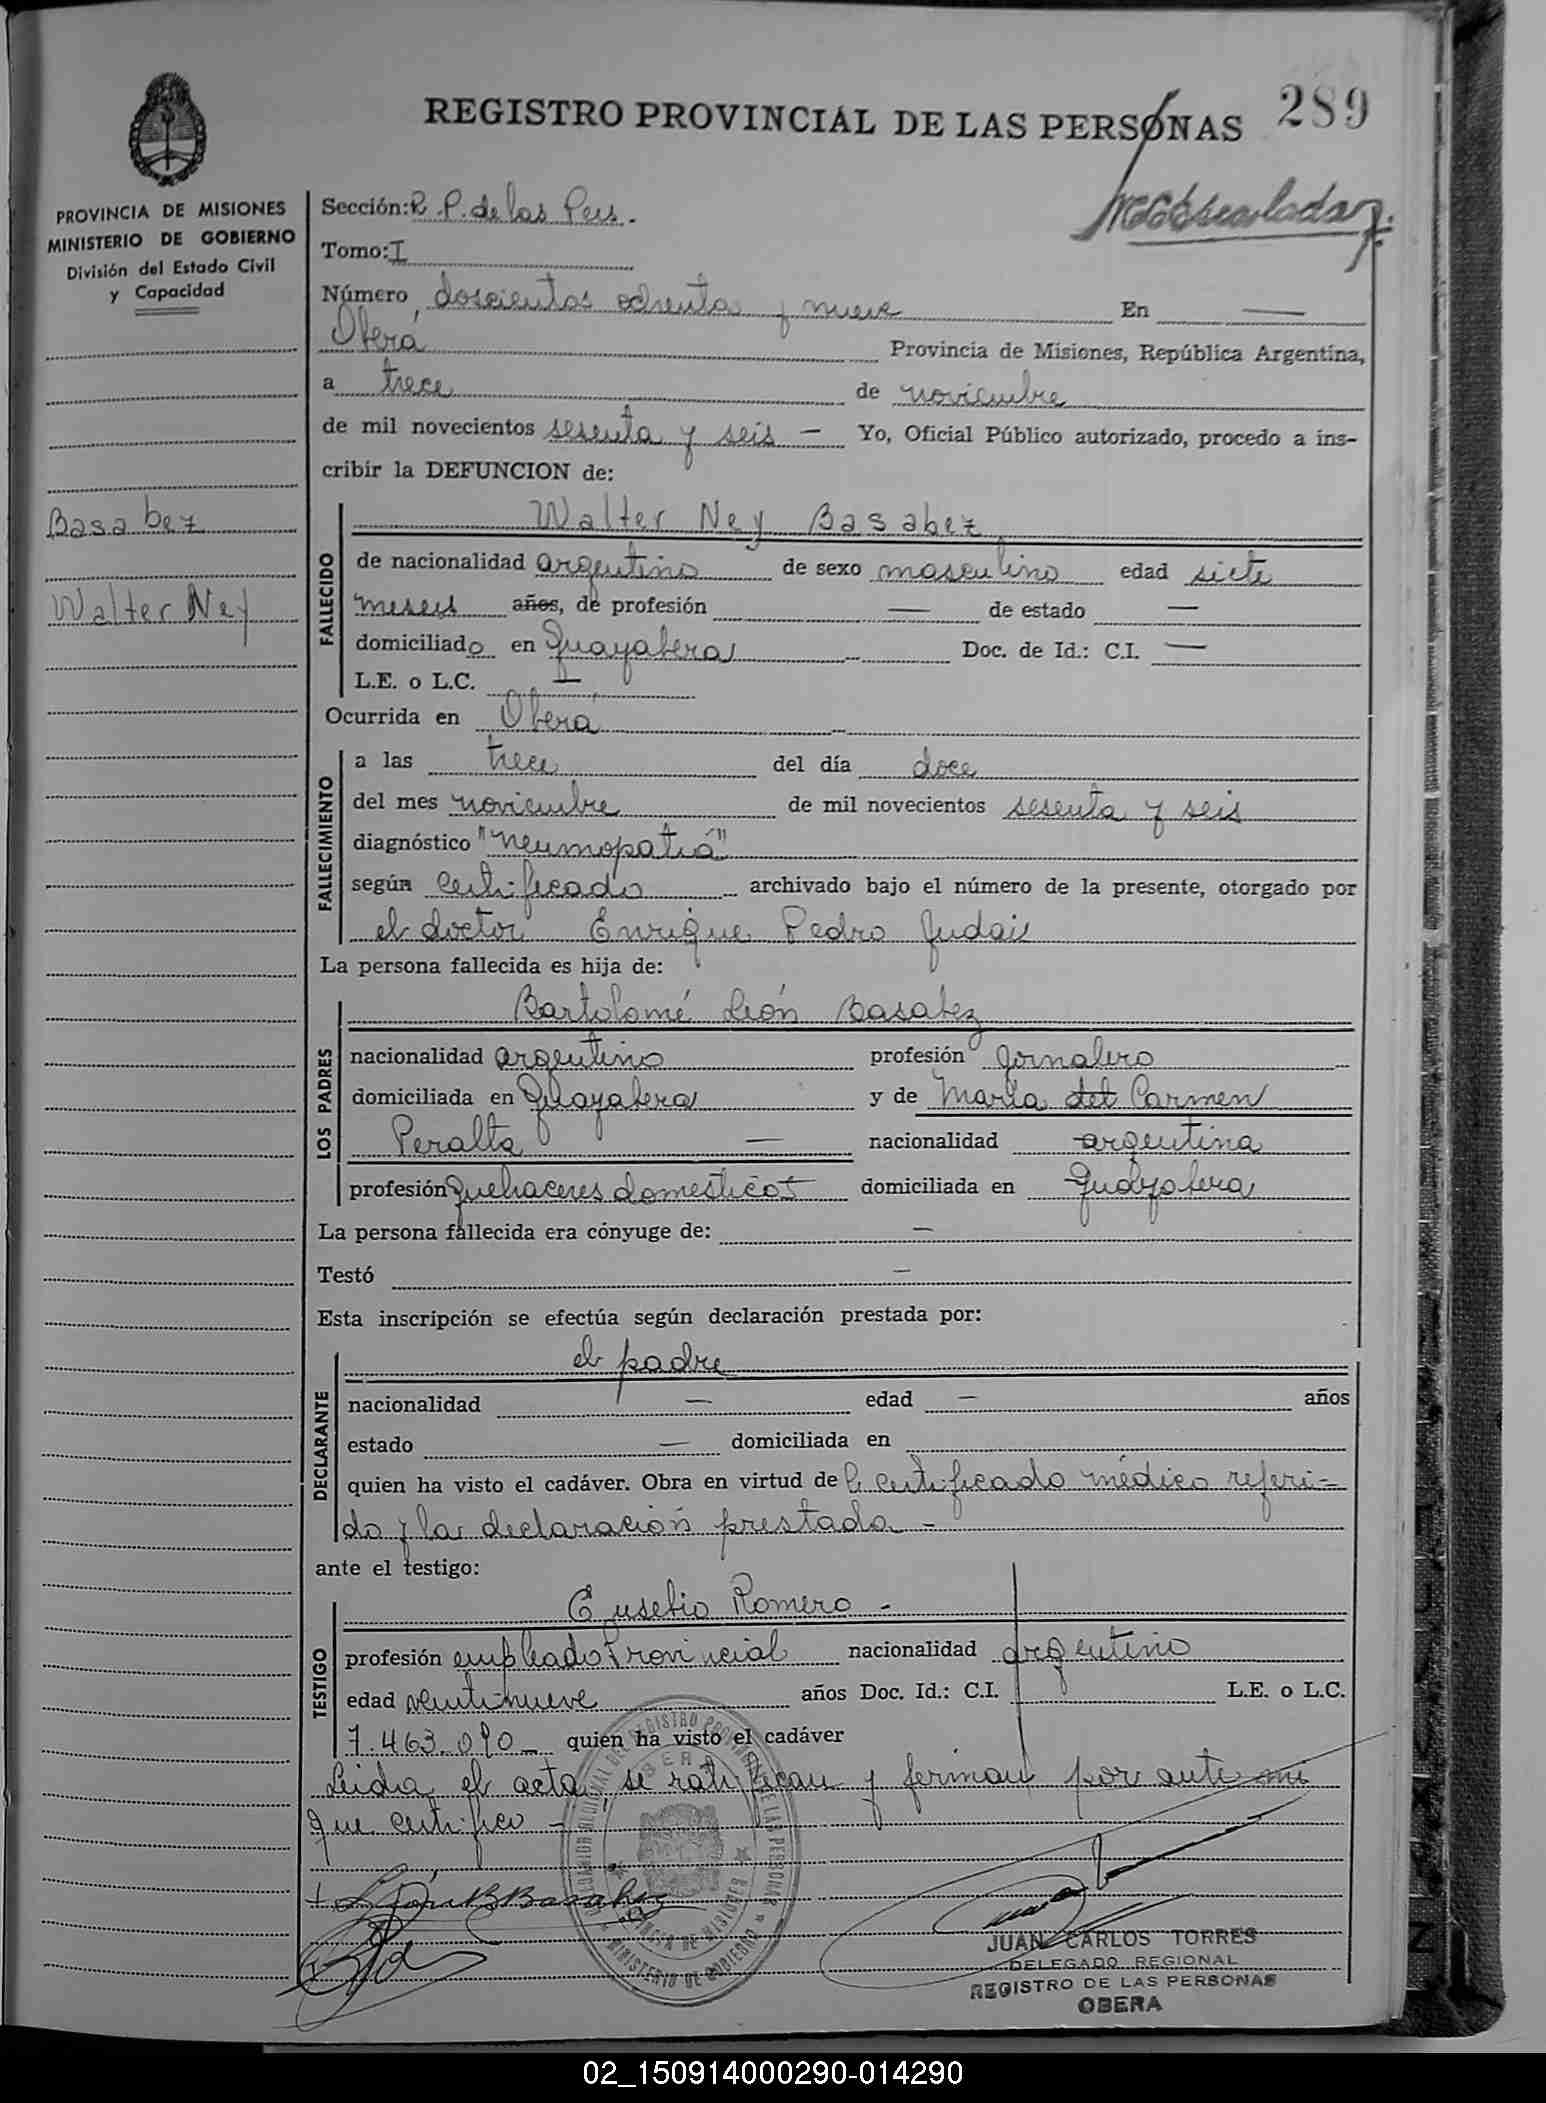 REGISTRO PROVINCIAL DE LAS PERSONAS 289
PROVINCIA DE MISIONES
MINISTERIO DE GOBIERNO
División del Estado Civil
y Capacidad
Basabez
Walter Ney
Sección: R. P. de las Pers.
Tomo: I
Número doscientos ochenta y nueve En —
Oberá Provincia de Misiones, República Argentina,
a trece de noviembre
de mil novecientos sesenta y seis — Yo, Oficial Público autorizado, procedo a ins-
cribir la DEFUNCION de:
FALLECIDO
Walter Ney Basabez
de nacionalidad argentino de sexo masculino edad siete
meses años, de profesión — de estado —
domiciliado en Guayabera Doc. de Id.: C.I. —
L.E. o L.C. —
Ocurrida en Oberá
FALLECIMIENTO
a las trece del día doce
del mes noviembre de mil novecientos sesenta y seis
diagnóstico "neumopatiá"
según certificado archivado bajo el número de la presente, otorgado por
el doctor Enrique Pedro Judais
La persona fallecida es hija de:
LOS PADRES
Bartolomé León Basabez
nacionalidad argentino profesión Jornalero
domiciliada en Guayabera y de María del Carmen
Peralta — nacionalidad argentina
profesión quehaceres domesticos domiciliada en Guayabera
La persona fallecida era cónyuge de: —
Testó —
Esta inscripción se efectúa según declaración prestada por:
DECLARANTE
el padre
nacionalidad — edad — años
estado — domiciliada en
quien ha visto el cadáver. Obra en virtud de certificado médico referi-
do y la declaración prestada -
ante el testigo:
TESTIGO
Eusebio Romero -
profesión empleado Provincial nacionalidad argentino
edad veintinueve años Doc. Id.: C.I. L.E. o L.C.
7.463.090 quien ha visto el cadáver
Leida el acta, se ratifican y firman por ante mi
que certifico -
MINISTERIO DE GOBIERNO
JUAN CARLOS TORRES
DELEGADO REGIONAL
REGISTRO DE LAS PERSONAS
OBERA
02_150914000290-014290